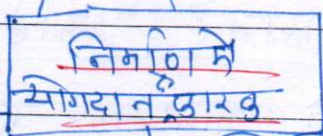 निर्माण में
योगदान कारक